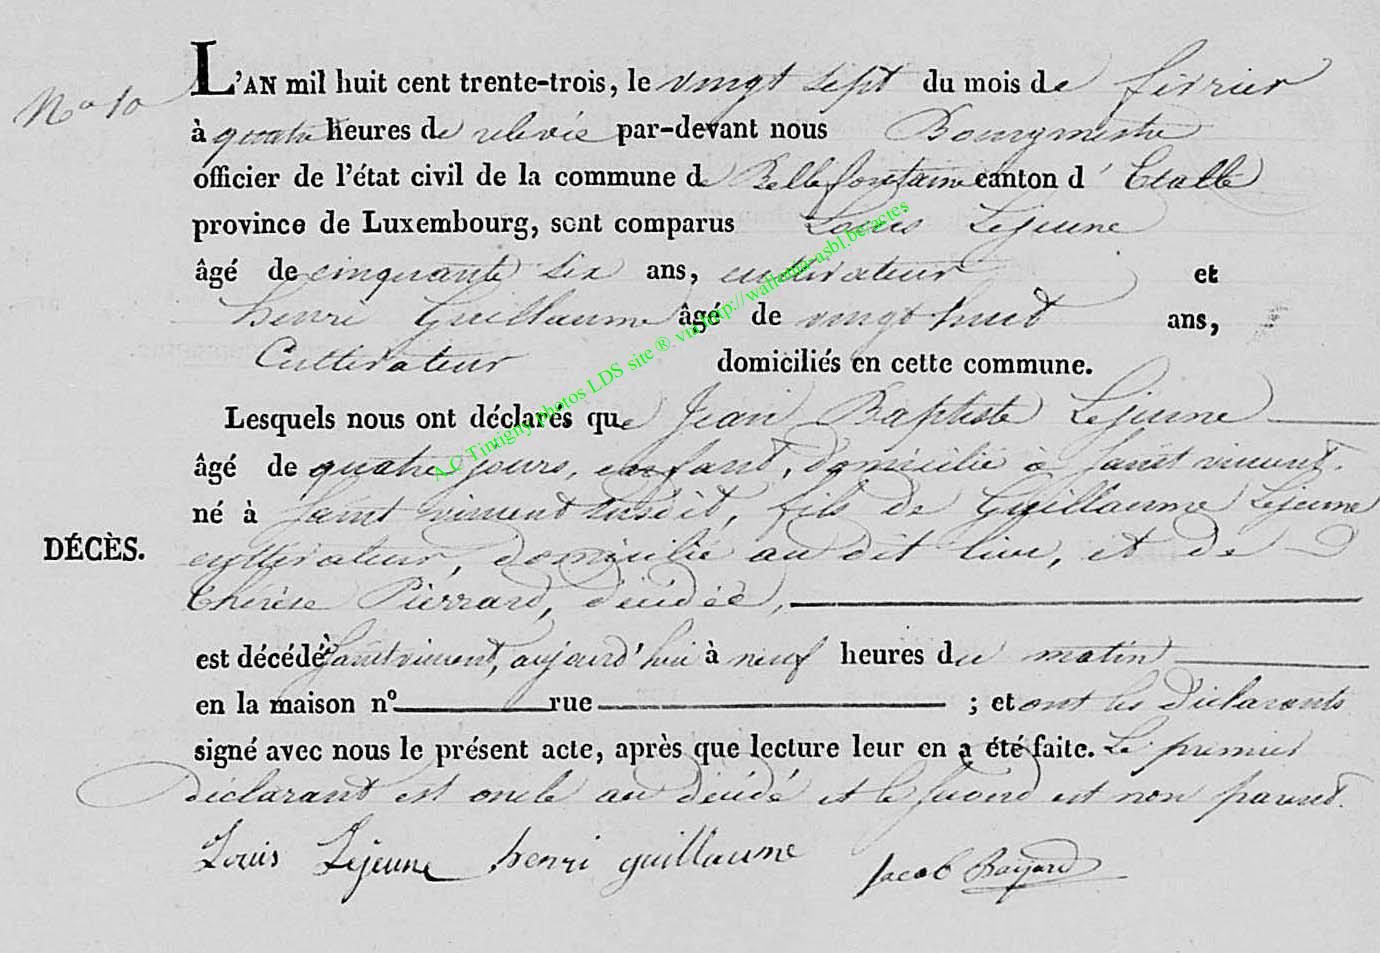 N° 10
L'AN mil huit cent trente-trois, le vingt sept du mois de février
à quatre heures de relevée par-devant nous Bourgmestre
officier de l'état civil de la commune de Bellefontaine canton d'Etalle
province de Luxembourg, sont comparus Louis Lejeune
âgé de cinquante six ans, cultivateur et
henri Guillaume âgé de vingt huit ans,
Cultivateur domiciliés en cette commune.
Lesquels nous ont déclarés que Jean Baptiste Lejeune
âgé de quatre jours, enfant, domicilié à Saint vincent.
né à Saint vincent susdit, fils de Guillaume Lejeune
DÉCÈS. cultivateur, domicilié au dit lieu, et de
thérèse Pierrard, décédée,
est décédé à Saint vincent, aujourd'hui à neuf heures du matin
en la maison n° rue ; et ont les Déclarants
signé avec nous le présent acte, après que lecture leur en a été faite. Le premier
déclarant est oncle au décédé et le second est non parent.
Louis Lejeune henri guillaume Jacob Bayard
A.C Tintigny photos LDS site ®. vm http://wallonia-asbl.be/actes